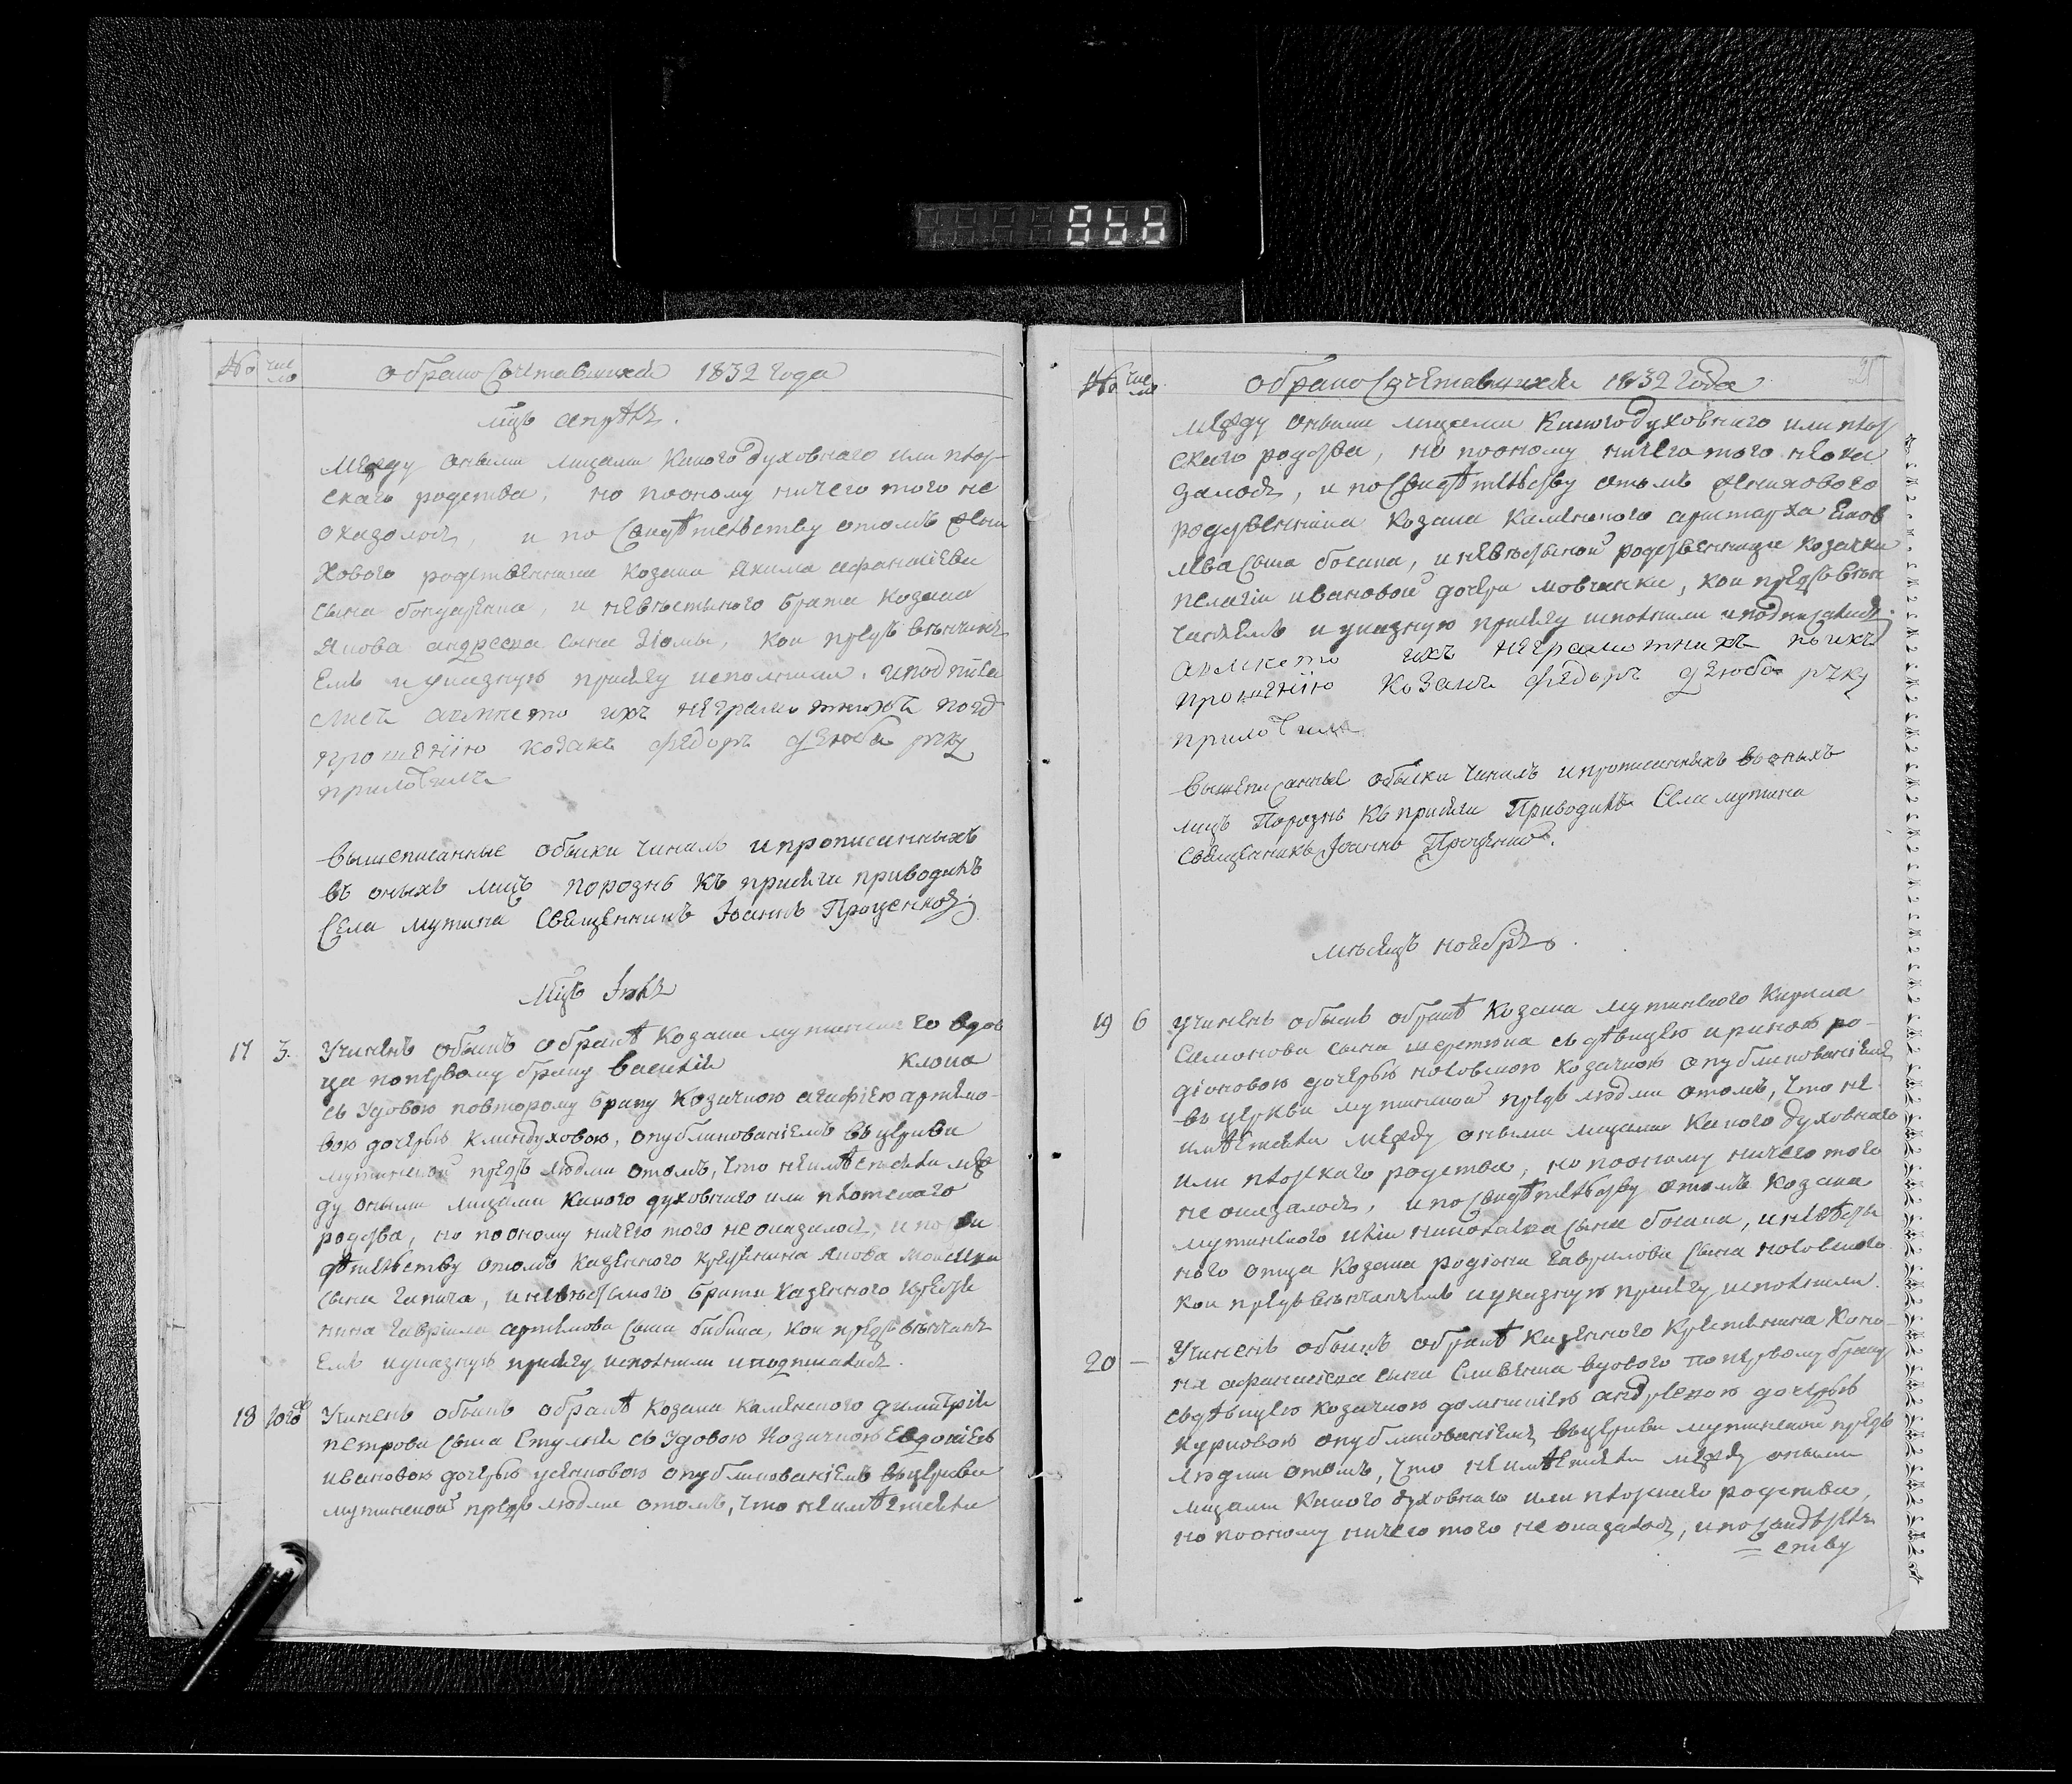 № чис ло
о брако Сочетавшихся 1832 года
мцъ апрѣль.
между оными лицами какого духовнаго или плот-
скаго родства, но пооному ничего того не
оказалось, и по Свидѣтельству отомъ жени
хового родственника козака Якима афанасіева
сына бондаренка, и невѣстиного брата козака
Якова андреева сына Зіомы, кои предъ вѣнчані
емъ и указную присягу исполнили. и подписа
лись авмѣсто ихъ неграмотнихъ по их
прошенію козакъ федоръ дзюба руку
приложилъ
вышеписанные обыски чинилъ и прописанныхъ
въ оныхъ лицъ порознь къ присяги приводилъ
Села мутина Священникъ Іоаннъ Проценко
Мцъ Іюль
17 3. Учиненъ обыскъ обракѣ козака мутинска го вдов
ца попервому браку василія клока
съ Удовою повторому браку козачкою агафіею артемо-
вою дочерью клиндуховою, опубликованіемъ въ церкви
мутинской предъ людми отомъ, что неимѣетсяли меж
ду оными лицами какого духовнаго или плотского
родства, но пооному ничего того не оказалось, и по сви
дѣтельству отомъ казенного крестянина Якова Моисеева
сына гапича, и невѣстиного брата казенного кресть
нина гавріила артемова сына бибика, кои предъ вѣнчані
емъ иуказную присягу исполнили иподписались.
18 того ж Учиненъ обыскъ обракѣ козака каменского димитрія
петрова сына Стулня съ Удовою козачкою Евдокіею
ивановою дочерью усенковою опубликованіемъ въ церкви
мутинской предъ людми отомъ, что неимѣетсяли
№ чис ло
о брако Сочетавшихся 1832 года
21
между оными лицами какогодуховнаго или плот
скаго родства, но пооному ничего того неока
залось, и по Свидѣтельству отомъ женихового
родственника козака каменского аристарха Яков
лева сына босака, и невѣстиной родственницы козачки
пелагіи ивановой дочери мовчанки, кои предъ вѣн
чаніемъ и указную присягу исполнили и подписались.
авмѣсто ихъ неграмотнихъ по ихъ
прошенію козакъ федоръ дзюба руку
приложилъ
вышеписанные обыски чинилъ ипрописанныхъ воныхъ
лицъ Порознь къ присяги Приводилъ Села мутина
Священникъ Іоаннъ Проценко.
мѣсяцъ ноябрь.
19 6 Учиненъ обыскъ обракѣ козака мутинского Кирила
Самонова сына шереткна съ дѣвицею ириною ро-
діоновою дочерью козачкою опубликованіемъ
въ церкви мутинской предъ людми отомъ, что не
имѣетсяли между оными лицами какого духовнаго
или плотскаго родства, но пооному ничего того
не оказалось, и по Свидѣтельству отомъ козака
мутинского иліи николаева сына босака, и невѣсти
ного отца козака родіона гаврилова сына
кои предъ вѣнчаніемъ и указную присягу исполнили.
20 — Учиненъ обыскъ обракѣ казенного крестянина Коно-
на афанасіева сына Сливенка вдового попервому браку
съ дѣвицею козачкою домникіею андреевою дочерью
курковою опубликованіемъ въ церкви мутинской предъ
людми отомъ, что неимѣетсяли между оными
лицами какого духовнаго или плотскаго родства,
но пооному ничего того не оказалось, ипо Свидѣтель
= ству